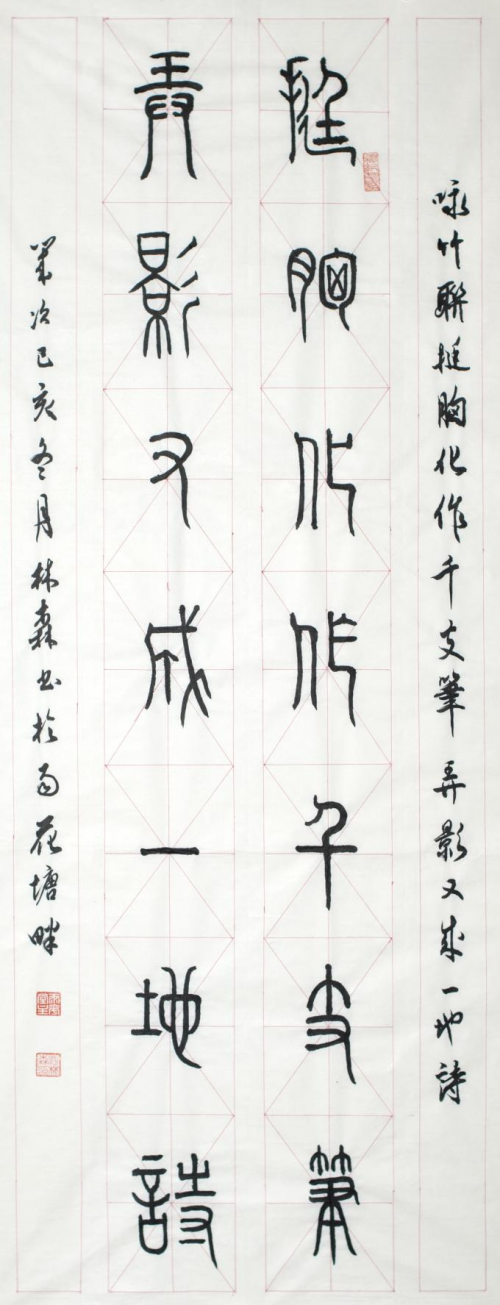 咏竹联挺胸化作千支筆弄影又成一地詩
挺胸化作千支筆
弄影又成一地詩
岁次己亥冬月林森书於雨花塘畔